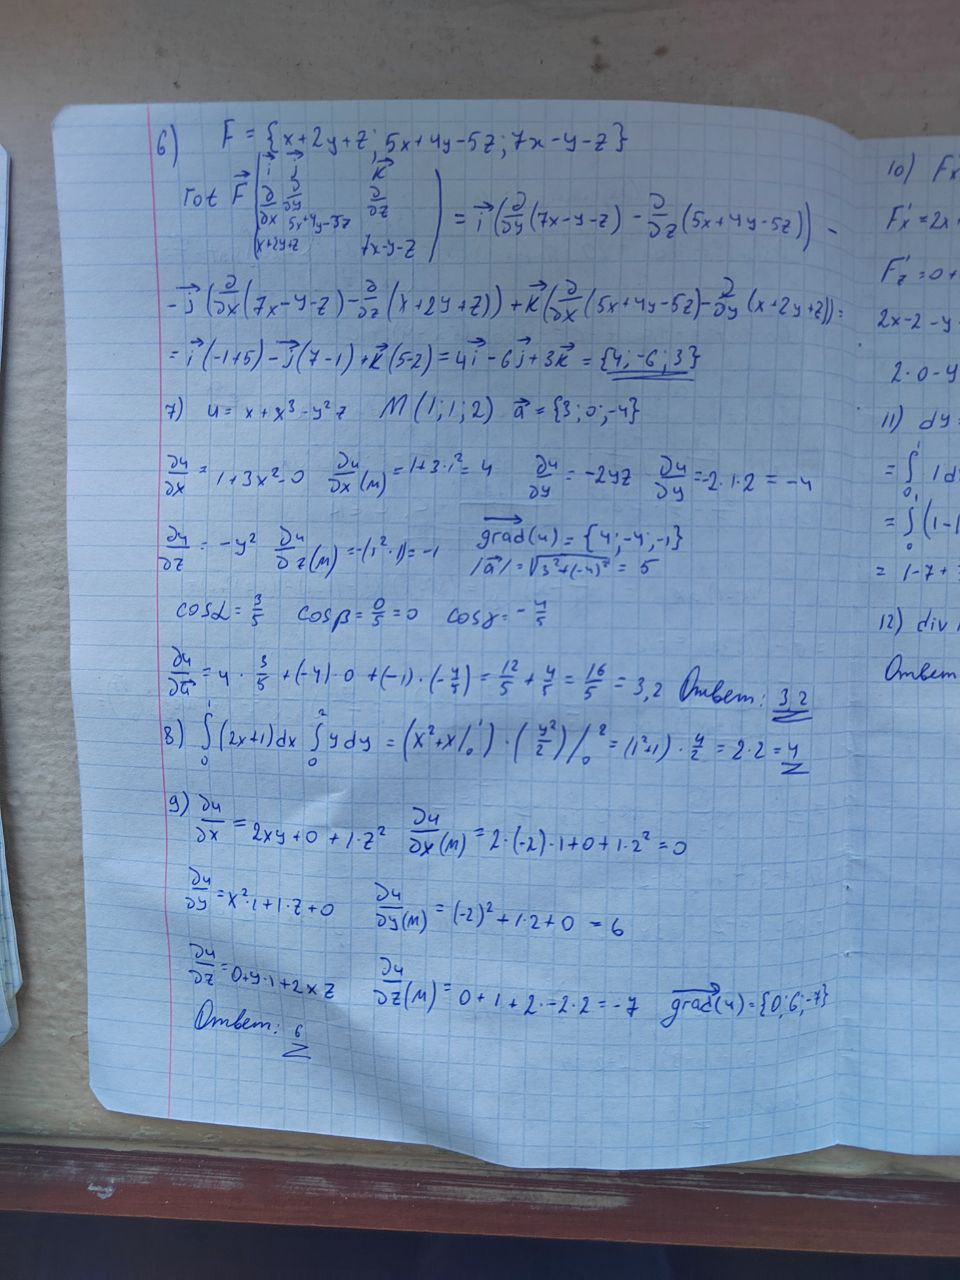 6) F = {x+2y+z; 5x+4y-5z; 7x-y-z}
rot F⃗ | i⃗ j⃗ k⃗
∂/∂x ∂/∂y ∂/∂z
5x+4y-5z
x+2y+z 7x-y-z | = i⃗(∂/∂y(7x-y-z) - ∂/∂z(5x+4y-5z)) -
- j⃗(∂/∂x(7x-y-z) - ∂/∂z(x+2y+z)) + k⃗(∂/∂x(5x+4y-5z) - ∂/∂y(x+2y+z)) =
= i⃗(-1+5) - j⃗(7-1) + k⃗(5-2) = 4i⃗ - 6j⃗ + 3k⃗ = {4; -6; 3}
7) u = x+x³-y²z M(1; 1; 2) a⃗ = {3; 0; -4}
∂u/∂x = 1+3x²-0 ∂u/∂x(M) = 1+3·1² = 4 ∂u/∂y = -2yz ∂u/∂y = -2·1·2 = -4
∂u/∂z = -y² ∂u/∂z(M) = -(1²·1) = -1 grad(u) = {4; -4; -1}
|a⃗| = √(3²+(-4)²) = 5
cosα = 3/5 cosβ = 0/5 = 0 cosγ = -4/5
∂u/∂a⃗ = 4 · 3/5 + (-4)·0 + (-1)·(-4/5) = 12/5 + 4/5 = 16/5 = 3,2 Ответ: 3,2
8) ∫₀¹(2x+1)dx ∫₀² y dy = (x²+x|₀¹) · (y²/2)|₀² = (1²+1) · 4/2 = 2·2 = 4
9) ∂u/∂x = 2xy+0+1·z² ∂u/∂x(M) = 2·(-2)·1+0+1·2² = 0
∂u/∂y = x²·1+1·z+0 ∂u/∂y(M) = (-2)²+1·2+0 = 6
∂u/∂z = 0+y·1+2xz ∂u/∂z(M) = 0+1+2·-2·2 = -7 grad(u) = {0; 6; -7}
Ответ: 6
10) Fx
Fx' = 2x
Fz' = 0+
2x-2-y
2·0-y
11) dy =
= ∫₀¹ 1d
= ∫₀¹ (1-
= 1-7+
12) div
Ответ